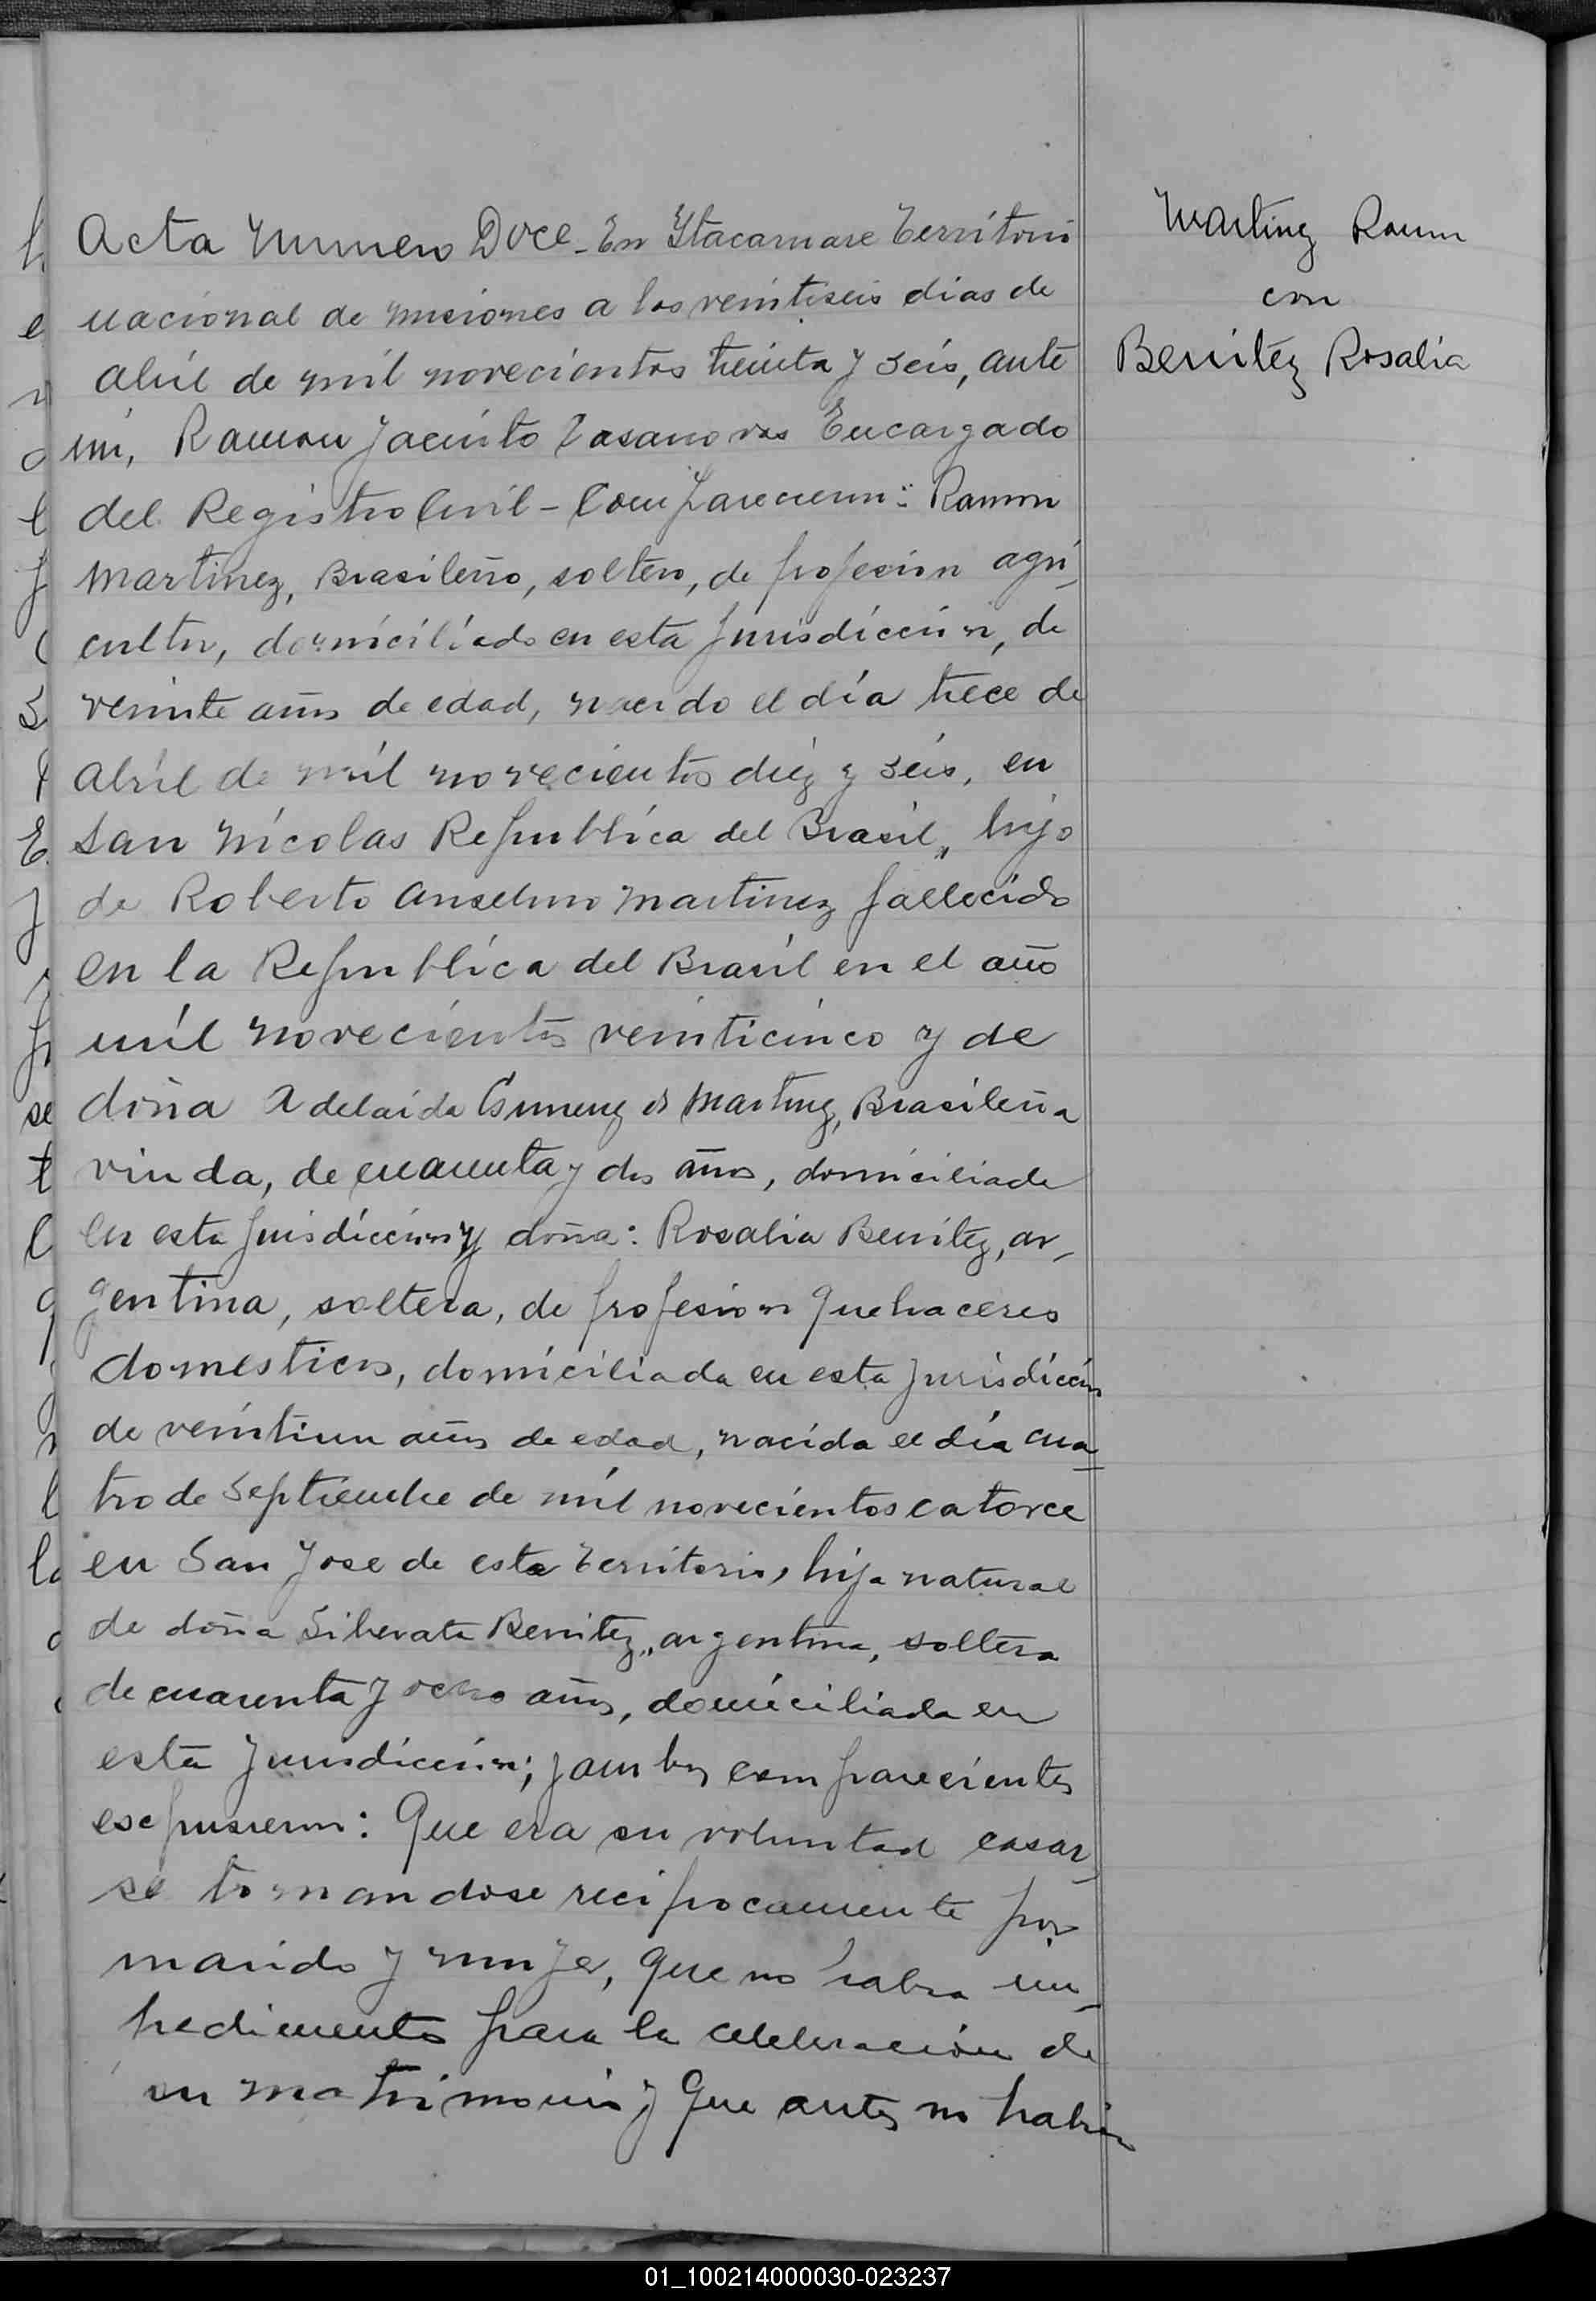 Acta Numero Doce - En Ytacaruare Territorio
nacional de Misiones a los veintiseis dias de
Abril de mil novecientos treinta y seis, ante
mi, Ramon Jacinto Casanovas Encargado
del Registro Civil - Comparecieron: Ramon
Martinez, Brasileño, soltero, de profesion agri-
cultor, domiciliado en esta Jurisdiccion, de
veinte años de edad, nacido el día trece de
Abril de mil novecientos diez y seis, en
San Nicolas Republica del Brasil, hijo
de Roberto Anselmo Martinez fallecido
en la Republica del Brasil en el año
mil novecientos veinticinco y de
doña Adelaida de Martinez, Brasileña
viuda, de cuarenta y dos años, domiciliada
en esta Jurisdiccion y doña: Rosalia Benitez, ar-
gentina, soltera, de profesion Quehaceres
domesticos, domiciliada en esta Jurisdiccion
de veintiun años de edad, nacida el día cua-
tro de Septiembre de mil novecientos catorce
en San Jose de este Territorio, hija natural
de doña Liberata Benitez, argentina, soltera
de cuarenta y ocho años, domiciliada en
esta Jurisdiccion; y ambos comparecientes
escpusieron: Que era su voluntad casar-
se tomandose reciprocamente por
marido y mujer, que no habia im-
pedimento para la celebración de
su matrimonio y que antes no habian
Martinez Ramon
con
Benitez Rosalia
01_100214000030-023237